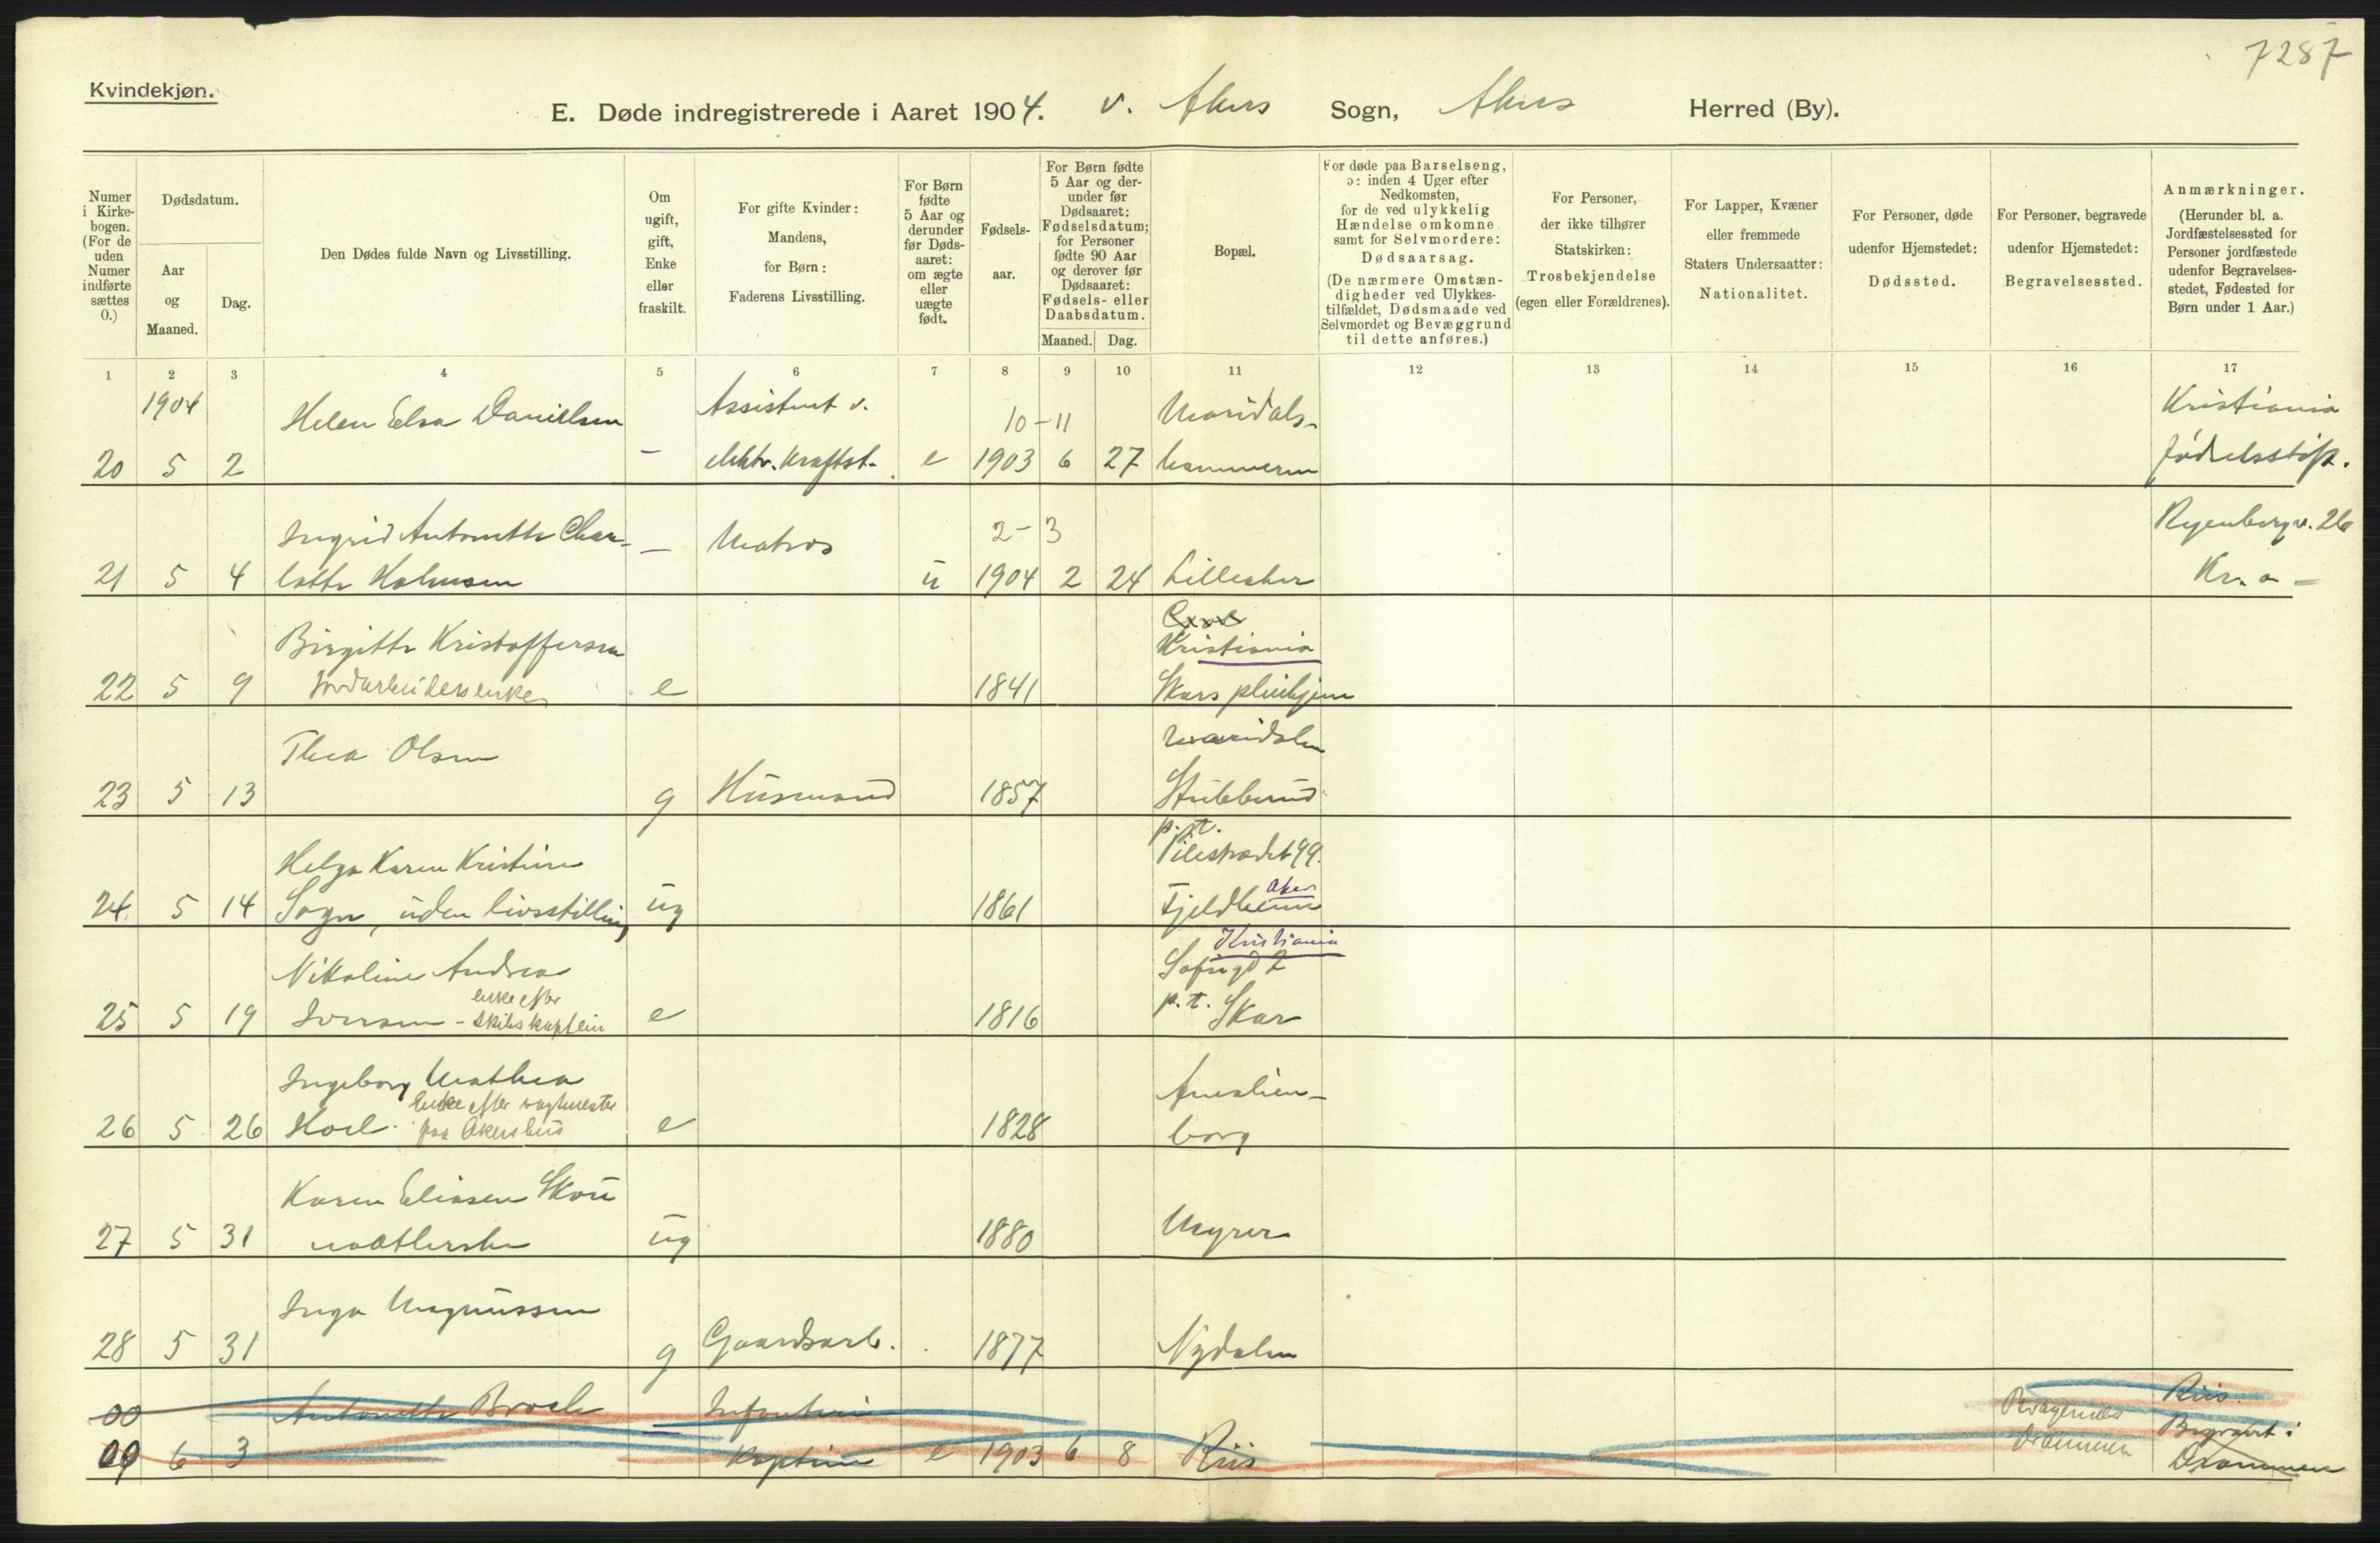 7287
Kvindekjøn.
E. Døde indregistrerede i Aaret 1904. V. Akers Sogn, Akers Herred (By).
Numer i Kirkebogen. (For de uden Numer indførte sættes 0.)
Dødsdatum.
Aar og Maaned.
Dag.
Den Dødes fulde Navn og Livsstilling.
Om ugift, gift, Enke eller fraskilt.
For gifte Kvinder: Mandens, for Børn: Faderens Livsstilling.
For Børn fødte 5 Aar og derunder før Dødsaaret: om ægte eller uægte født.
Fødselsaar.
For Børn fødte 5 Aar og derunder før Dødsaaret: Fødselsdatum; for Personer fødte 90 Aar og derover før Dødsaaret: Fødsels- eller Daabsdatum.
Maaned. Dag.
Bopæl.
For døde paa Barselseng, ɔ: inden 4 Uger efter Nedkomsten, for de ved ulykkelig Hændelse omkomne samt for Selvmordere: Dødsaarsag.
(De nærmere Omstændigheder ved Ulykkestilfældet, Dødsmaade ved Selvmordet og Bevæggrund til dette anføres.)
For Personer, der ikke tilhører Statskirken: Trosbekjendelse (egen eller Forældrenes).
For Lapper, Kvæner eller fremmede Staters Undersaatter: Nationalitet.
For Personer, døde udenfor Hjemstedet: Dødssted.
For Personer, begravede udenfor Hjemstedet: Begravelsessted.
Anmærkninger.
(Herunder bl. a. Jordfæstelsessted for Personer jordfæstede udenfor Begravelsesstedet, Fødested for Børn under 1 Aar.)
1 2 3 4 5 6 7 8 9 10 11 12 13 14 15 16 17
1904 Helen Elsa Danielsen Assistent v. 10-11 Maridals- Kristiania
20 5 2 – elektr. Kraftst. e 1903 6 27 hammeren fødselsstift.
Ingrid Antonette Char- – Matros 2-3 Ryenbergv. 26
21 5 4 lotte Halmsen u 1904 2 24 Lilleaker Kr.a –
Birgitte Kristoffersen Kristiania
22 5 9 Jordarbeidersenke e 1841 Skars pleiehjem
Thea Olsen Maridalen
23 5 13 g Husmand 1857 Stubberud
p.t.
Helga Karen Kristine Pilestrædet 99.
Aker
24. 5 14 Sogn, uden livsstilling ug 1861 Fjeldheim
Kristiania
Nikoline Andrea Sofiegd 2
enke efter
25 5 19 Iversen – skibskaptein e 1816 p.t. Skar
Ingeborg Mathea Amalien-
Enke efter vagtmester
26 5 26 Hoel. paa Akershus e 1828 borg
Karen Eliasen Skou
27 5 31 ug 1880 Myrer
Inga Magnussen
28 5 31 g Gaardsarb. 1877 Nydalen
00 Antonette Broch – Infanteri Bragernes Riis.
09 6 3 Kaptein e 1903 6 8 Riis Drammen Begravet i
Drammen